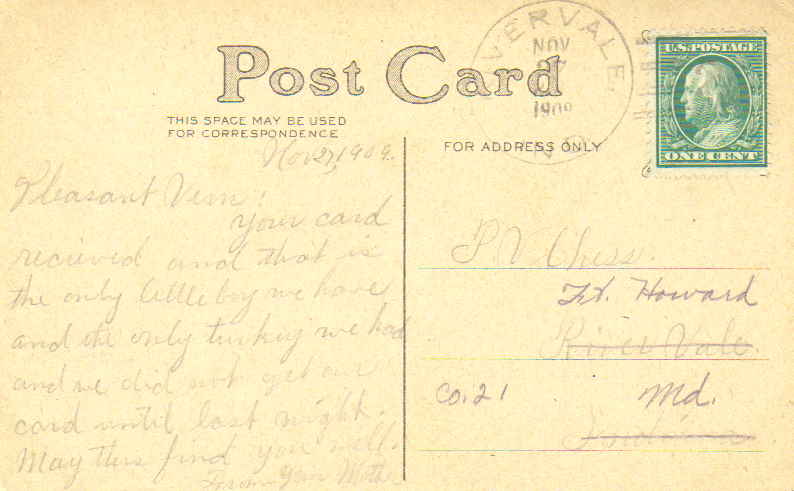 Post Card
VERVALE,
NOV
27
1909
U.S. POSTAGE
ONE CENT
THIS SPACE MAY BE USED
FOR CORRESPONDENCE
FOR ADDRESS ONLY
Nov 27, 1909.
Pleasant Vern:
your card
recieved and that is
the only little boy we have
and the only turkey we had
and we did not get our
card until last night.
May this find you well.
From your Mother
P V Chess.
Ft. Howard
River Vale.
Co. 21 Md.
Indiana